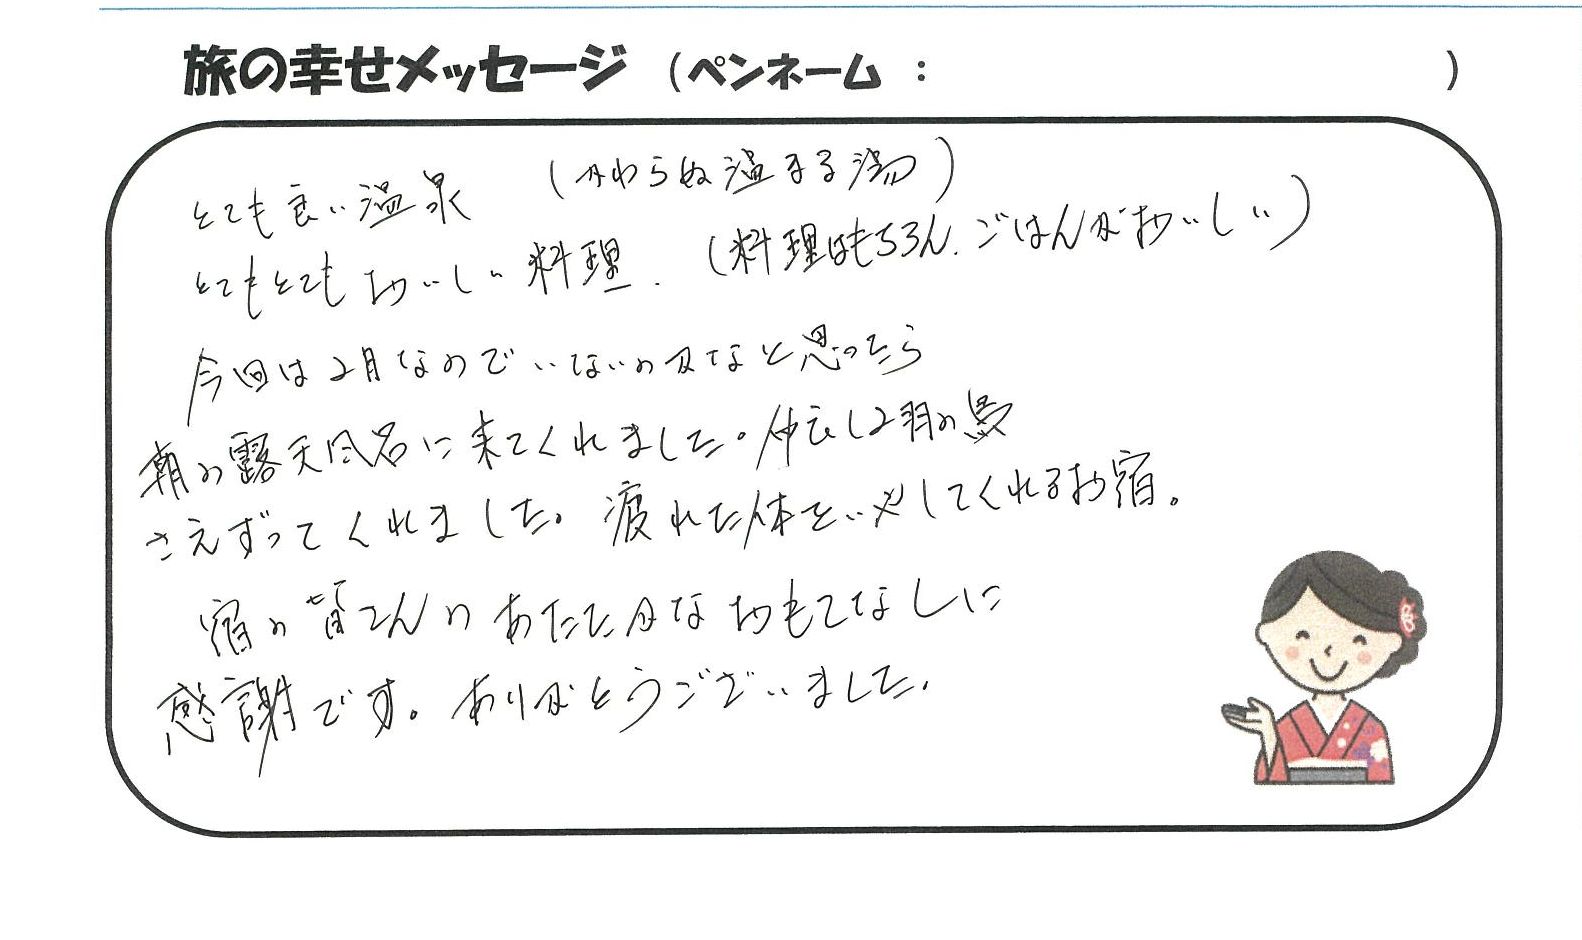 旅の幸せメッセージ (ペンネーム : )
とても良い温泉 (かわらぬ温まる湯)
とてもとてもおいしい料理. (料理はもちろん、ごはんがおいしい)
今回は2月なのでいないのかなと思ったら
朝の露天風呂に来てくれました。仲良し2羽の鳥
さえずってくれました。疲れた体をいやしてくれるお宿。
宿の皆さんのあたたかなおもてなしに
感謝です。ありがとうございました.